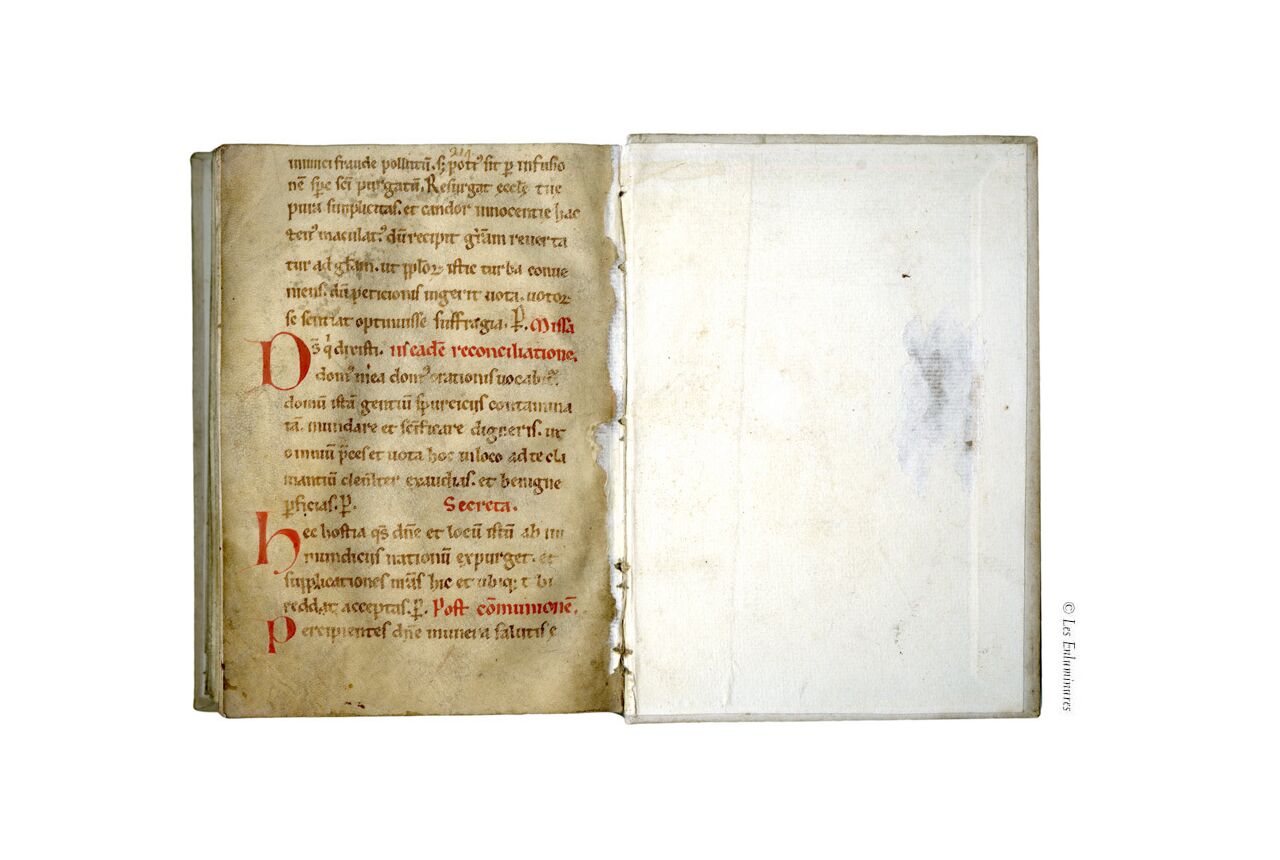 214
inimici fraude pollutū. sꝫ poti᷒ sit ꝑ infusio
nē spc̄ sc̄i purgatū. Resurgat eccl̄e tue
pura simplicitas. et candor innocentie hac
ten᷒ maculat᷒. dū recipit gr̄am reuerta
tur ad gl̄iam. ut ppl̄oꝝ istic turba conue
niens. dū peticionis ingerit uota. uotoꝝ
se sentiat optinuisse suffragia. ꝑ. Missa
Ds̄ q̇ dixisti. in eadē reconciliatione.
dom᷒ mea dom᷒ orationis uocabit᷒.
domū istā gentiū spurciciis contamina
tā. mundare et sc̄ificare digneris. ut
omniū p̄ces et uota hoc in loco ad te cla
mantiū clem̄ter exaudias. et benigne
ꝑficias. ꝑ. Secreta.
Hec hostia qs̄ dn̄e et locū istū ab im
mundiciis nationū expurget. et
supplicationes nr̄as hic et ubiqꝫ t bi
reddat acceptas. ꝑ. Post cōmunionē.
Percipientes dn̄e munera salutis e
© Les Enluminures